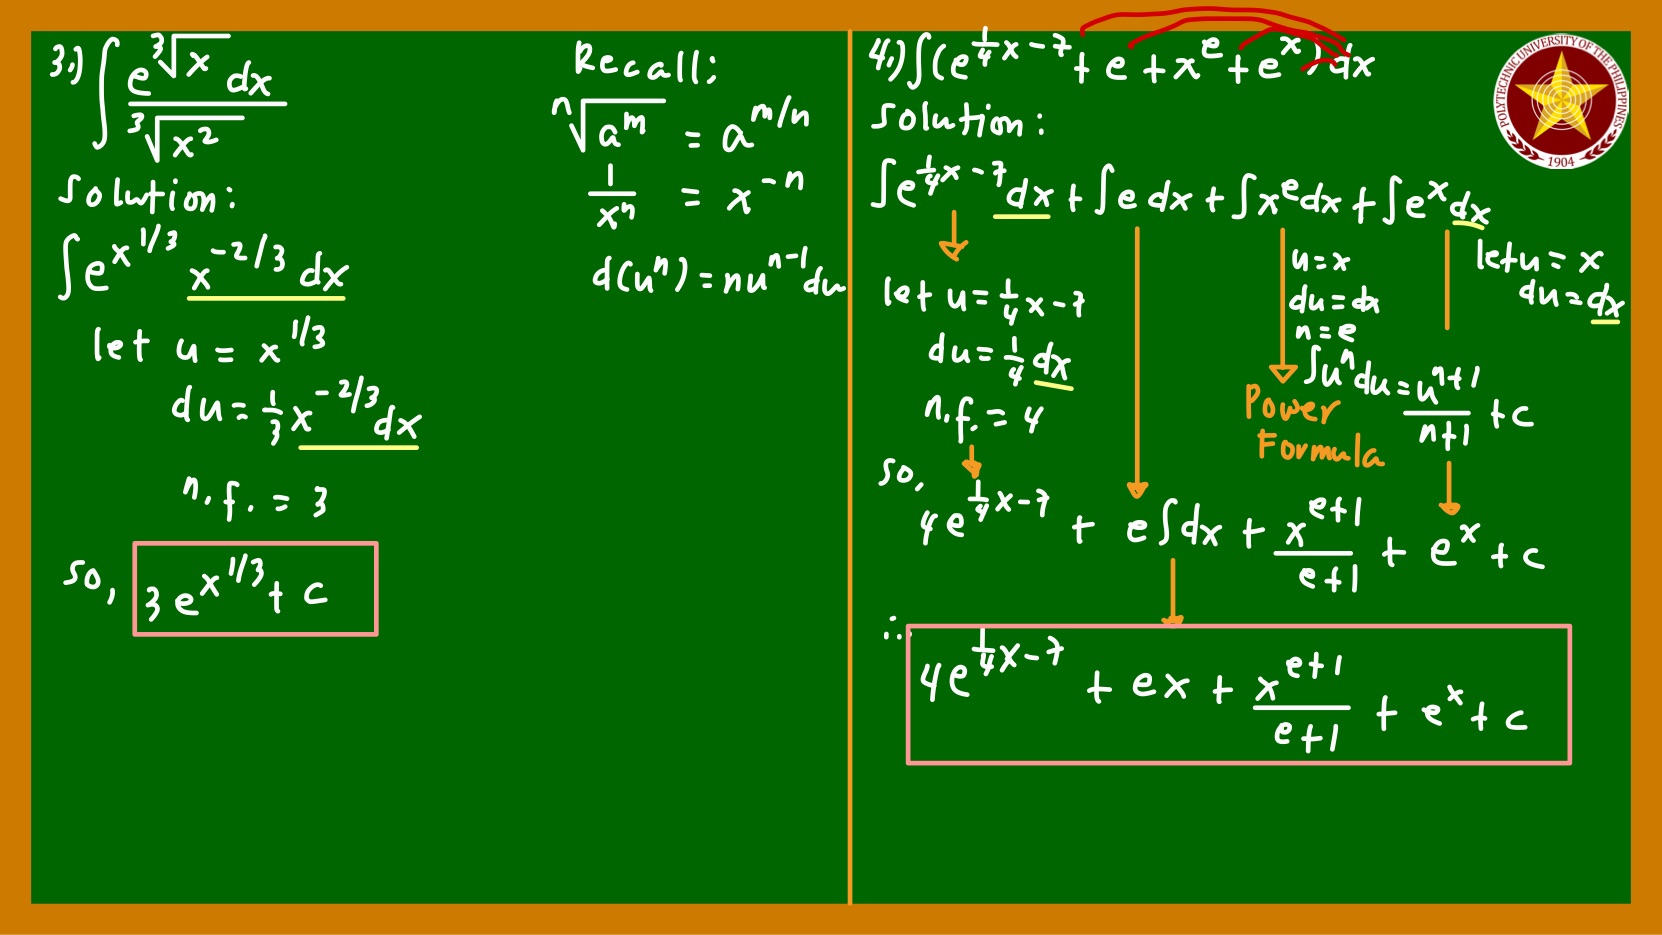 3.) ∫ e^∛x dx / ∛x²
Solution:
∫e^x^1/3 x^-2/3 dx
let u = x^1/3
du = 1/3 x^-2/3 dx
n.f. = 3
so, 3e^x^1/3 + c
Recall:
ⁿ√a^m = a^m/n
1/xⁿ = x^-n
d(uⁿ) = nu^n-1 du
4.) ∫(e^1/4x-7 + e + x^e + e^x) dx
Solution:
∫e^1/4x-7 dx + ∫e dx + ∫x^e dx + ∫e^x dx
let u = 1/4x-7
du = 1/4 dx
n.f. = 4
u = x
du = dx
n = e
∫uⁿdu = u^n+1 / n+1 + c
Power
Formula
let u = x
du = dx
so,
4e^1/4x-7 + e∫dx + x^e+1 / e+1 + e^x + c
∴ 4e^1/4x-7 + ex + x^e+1 / e+1 + e^x + c
POLYTECHNIC UNIVERSITY OF THE PHILIPPINES
1904